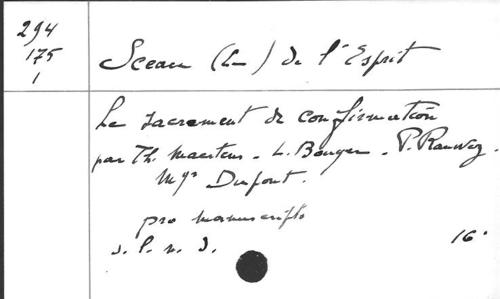 294
175
1
Sceau (Le) de l'Esprit
Le sacrement de confirmation
par Th. Maertens - L. Bouyer - P. Rauwez.
Mgr Dupont.
pro manuscripto
s. l. n. d.
16°